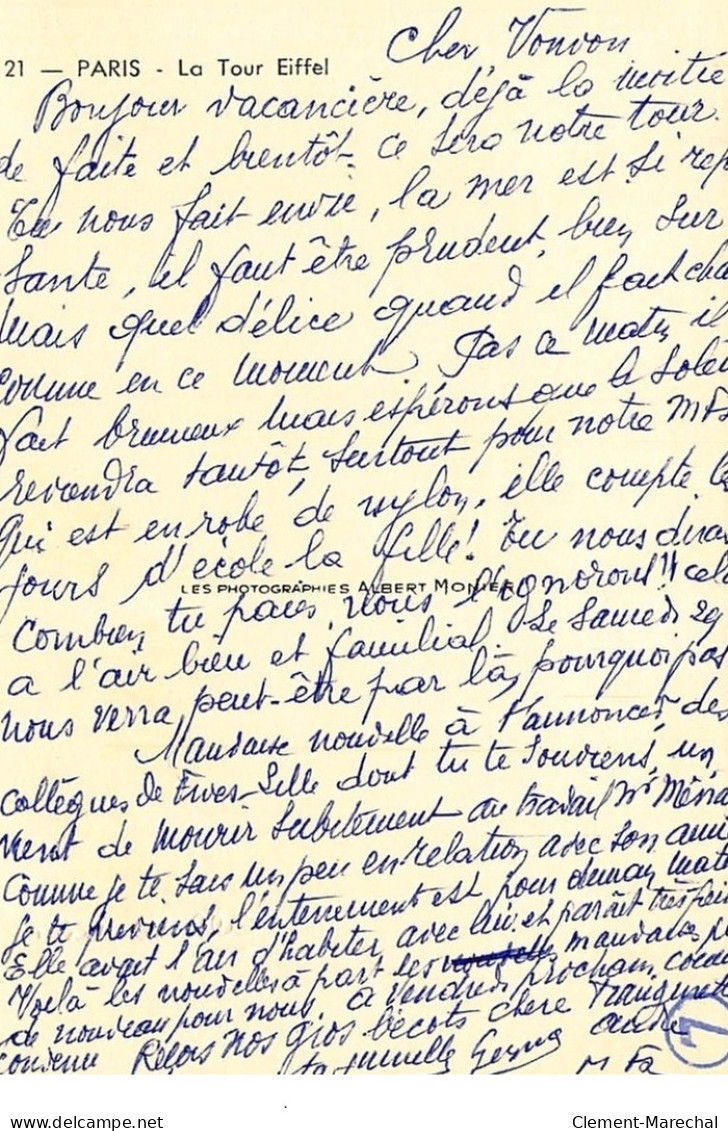 Cher Vonvon
21 — PARIS - La Tour Eiffel
Bonjour vacancière, déjà la moitié
de faite et bientôt ce sera notre tour.
Tu nous fait envie, la mer est si rep
sante, il faut être prudent, bien sur
mais quel délice quand il fait cha
comme en ce moment. Pas ce matin il
fait brumeux mais espérons que le solei
reviendra tantôt, surtout pour notre
qui est en robe de nylon, elle compte le
jours d'école la fille! Tu nous diras
LES PHOTOGRAPHIES ALBERT MONIER
combien tu paies, nous l'ignorons!! cel
a l'air bien et familial. Le samedi 29
nous verra peut-être par là, pourquoi pas
Mauvaise nouvelle à t'annoncer, des
collègues de Fives-Lille dont tu te souviens, un
vient de mourir subitement au travail Mr
Comme je te sais un peu en relation avec son amie
je te préviens, l'enterrement est pour demain matin
Elle avait l'air d'habiter avec lui et paraît très
Voilà les nouvelles à part les mauvaises
de nouveau pour nous. A vendredi prochain, comme
convenu Reçois nos gros bécots chère
ta jumelle
7
Clement-Marechal